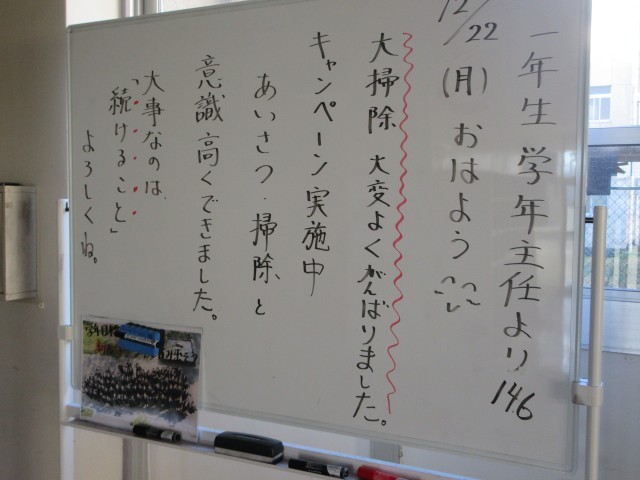 一年生 学年主任より 146
12/22(月) おはよう
大掃除 大変よくがんばりました。
キャンペーン実施中
あいさつ・掃除と
意識高くできました。
大事なのは、
「続けること」
よろしくね。